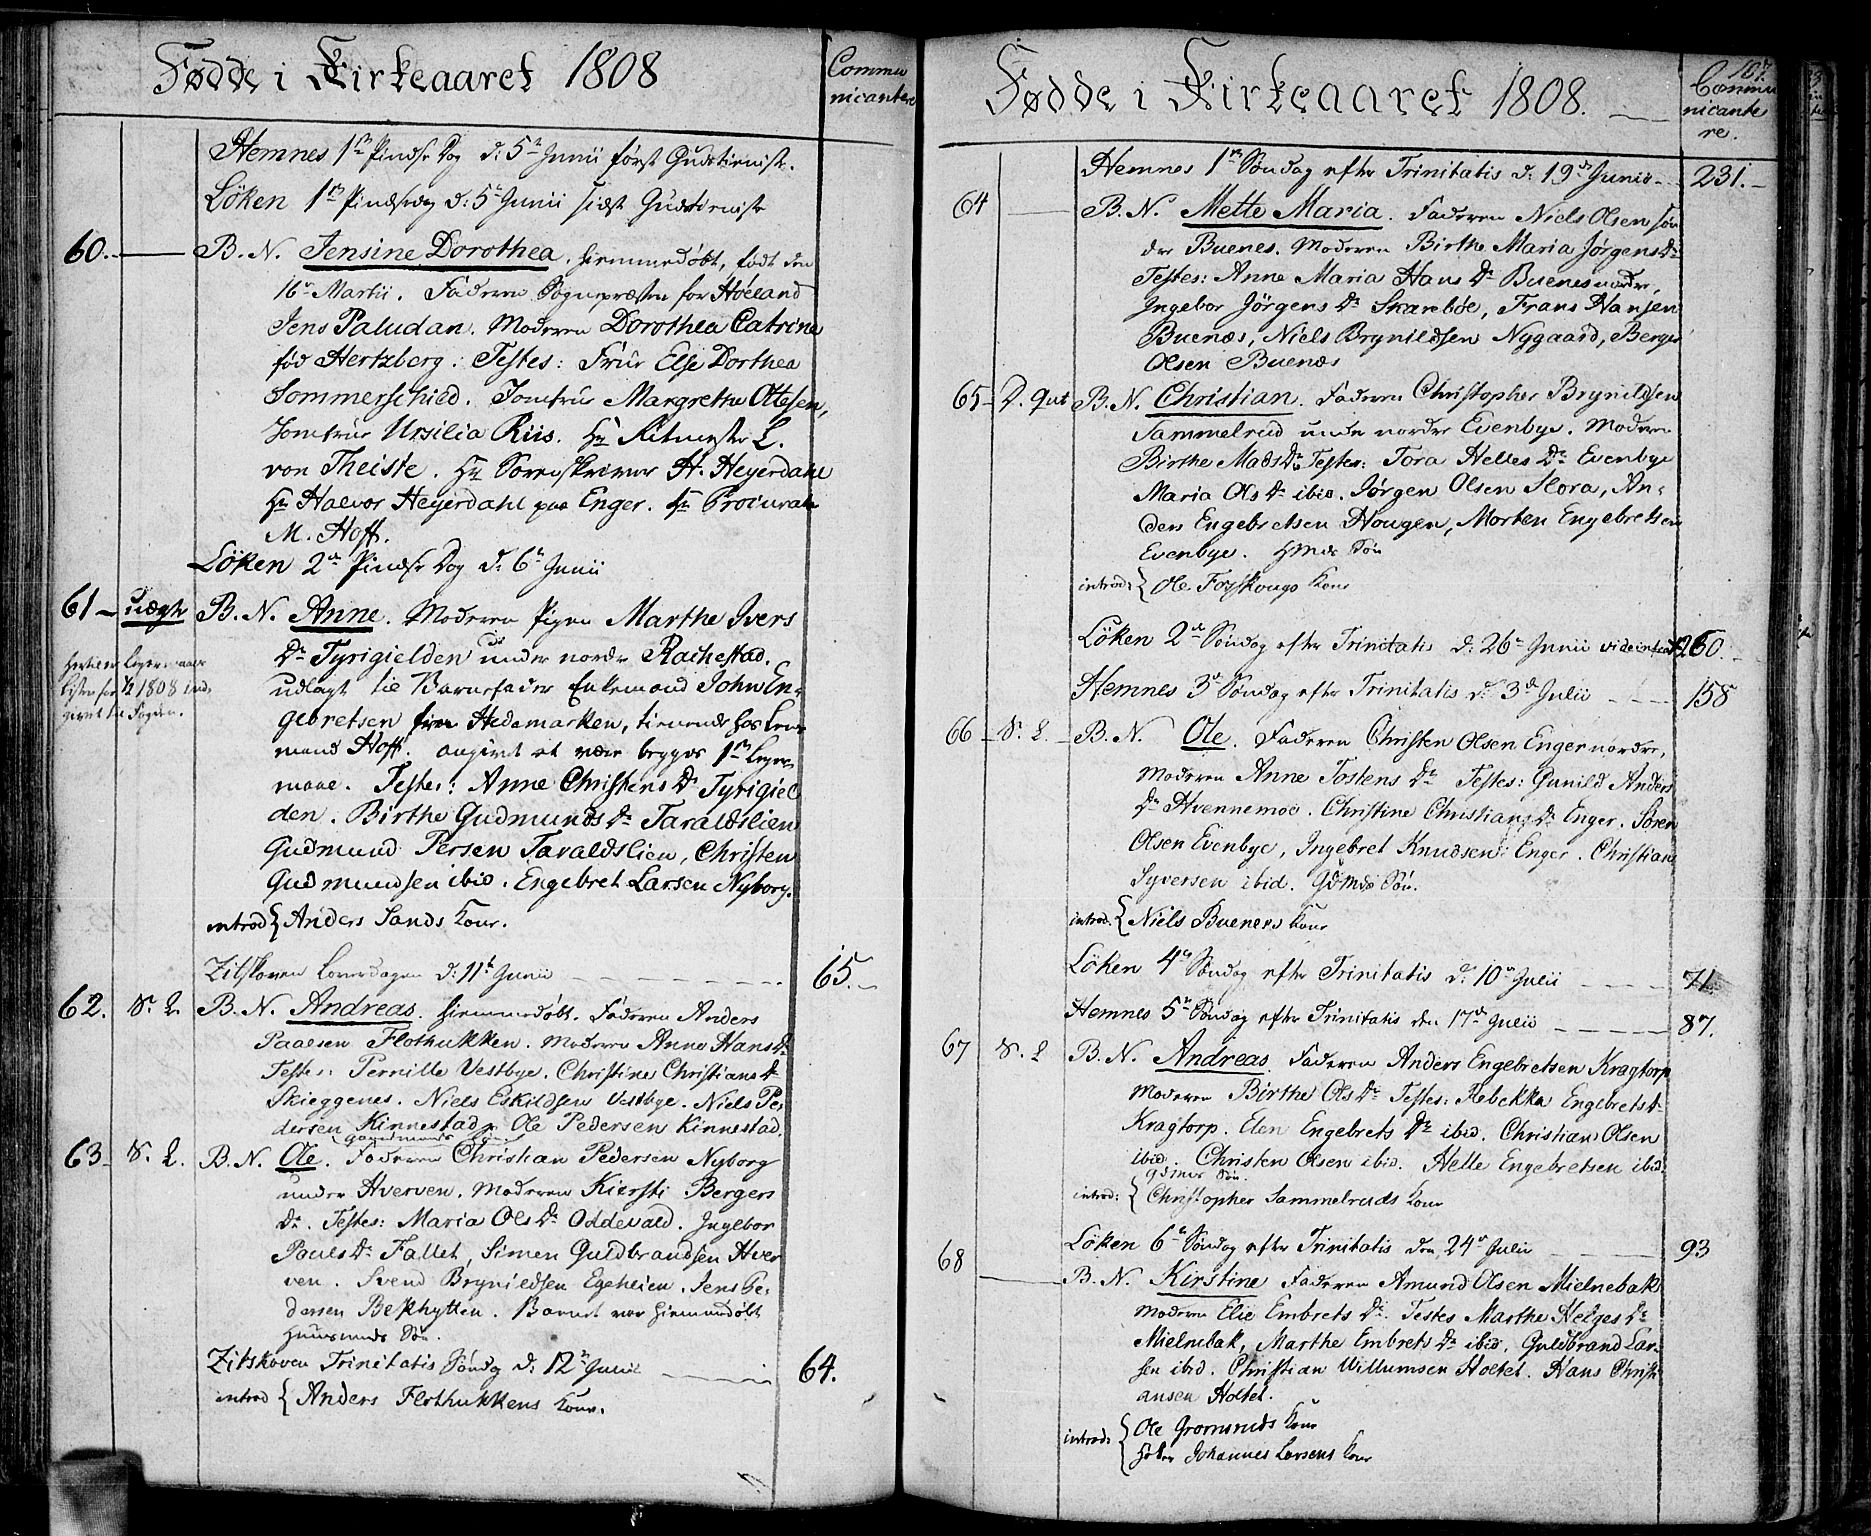 Fødde i Kirkeaaret 1808
Commu
nicantere
Hemnes 1ste Pindse Dag d: 5te Junii først Gudstieniste.
Löken 1ste Pindsedag d: 5te Junii sidst Gudstieniste
60. B. N. Jensine Dorothea. hiemmedøbt, født den
16de Martii. Faderen Sognepræsten for Høeland
Jens Paludan. Moderen Dorothea Catrine
fød Hertzberg. Testes: Frue Else Dorthea
Sommerschied. Jomfrue Margrethe Ottesen,
Jomfrue Ursilia Riis. Hr Ritmester L.
von Theiste. Hr Sorenskriver H. Heyerdahl
Hr Halvor Heyerdahl paa Enger. Hr Procurator
M. Hoff.
Löken 2den Pindse Dag d: 6te Junii
61 - uægte B. N. Anne. Moderen Pigen Marthe Ivers
Dr Tyrigielden under nordre Rachestad.
udlagt til Barnefader Enkemand John En-
gebretsen fra Hedemarken, tienende hos Lens
mand Hoff. angivet at være begges 1ste Leyer
maal. Testes: Anne Christens Dr Tyrigiel
den. Birthe Gudmunds Dr Taraldslien
Gudmund Persen Taraldslien, Christen
Gudmundsen ibid. Engebret Larsen Nyborg.
listen for 1/2 1808 ind-
givet til Fogden.
introd { Anders Sands Kone.
Zitskoven Løverdagen d: 11te Junii 65.
62. S. L. B. N. Andreas. hiemmedøbt. Faderen Anders
Paalsen Flothukken. Moderen Anne Hans Dr
Testes: Pernille Vestbye. Christine Christians Dr
Skieggenes. Niels Eskildsen Vestbye. Niels Pe-
dersen Kinnestad. Ole Pedersen Kinnestad.
Gaardmands Søn
63 S. L. B. N. Ole. Faderen Christian Pedersen Nyborg
under Hverven. Moderen Kiersti Bergers
Dr. Testes: Maria Ols Dr Oddevald. Ingebor
Pauls Dr Fallet, Simen Guldbrandsen Hver
ven. Svend Brynildsen Egeheien. Jens Pe-
dersen Bekhytten. Barnet var hiemmedøbt
Huusmands Søn.
Zitskoven Trinitatis Søndag d: 12te Junii 64.
introd { Anders Flothukkens Kone.
Fødde i Kirkeaaret 1808.
107.
Commu
nicante
re.
Hemnes 1ste Søndag efter Trinitatis d: 19de Junii 231.
64 B. N. Mette Maria. Faderen Niels Olsen søn
dre Buenes. Moderen Birthe Maria Jørgens Dr
Testes: Anne Maria Hans Dr Buenes nordre,
Ingebor Jörgens Dr Skarebøe, Frans Hansen
Buenæs, Niels Brynildsen Nygaard, Berger
Olsen Buenæs
65 - D. qut B. N. Christian. Faderen Christopher Brynildsen
Sammelrud under nordre Evenbye. Moderen
Birthe Mads Dr Testes: Tora Helles Dr Evenbye
Maria Ols Dr ibid. Jørgen Olsen Flora, An-
ders Engebretsen Hougen, Morten Engebretsen
Evenbye. Hmds Søn
introd: { Ole Foss kougs Kone
Löken 2den Søndag efter Trinitatis d: 26de Junii 260.
Hemnes 3die Søndag efter Trinitatis d: 3die Julii 158
66 - S. L. B. N. Ole. Faderen Christen Olsen Enger nordre,
Moderen Anne Tostens Dr Testes: Gunild Anders
Dr Hvennemoe. Christine Christians Dr Enger. Søren
Olsen Evenbye, Ingebret Knudsen Enger. Christian
Syversen ibid. Gdmds Søn.
introd. { Niels Bueners Kone
Löken 4de Søndag efter Trinitatis d: 10de Julii 71.
Hemnes 5te Søndag efter Trinitatis den 17de Julii 87.
67 S. L B. N. Andreas. Faderen Anders Engebretsen Kragtorp
Moderen Birthe Ols Dr Testes: Rebekka Engebrets Dr
Kragtorp. Elen Engebrets Dr ibid. Christian Olsen
ibid. Christen Olsen ibid. Helle Engebretsen ibid.
Gdmds Søn.
introd: { Christopher Sammelruds Kone
Löken 6te Søndag efter Trinitatis den 24de Julii 93
68 B. N. Kirstine Faderen Amund Olsen Mielnebak
Moderen Elie Embrets Dr. Testes Marthe Helges Dr
Mielnebak, Marthe Embrets Dr ibid. Guldbrand Lar-
sen ibid. Christian Willumsen Holtet. Hans Christi
ansen Holtet.
introd: { Ole Gromsruds Kone
Johannes Larsens Kone